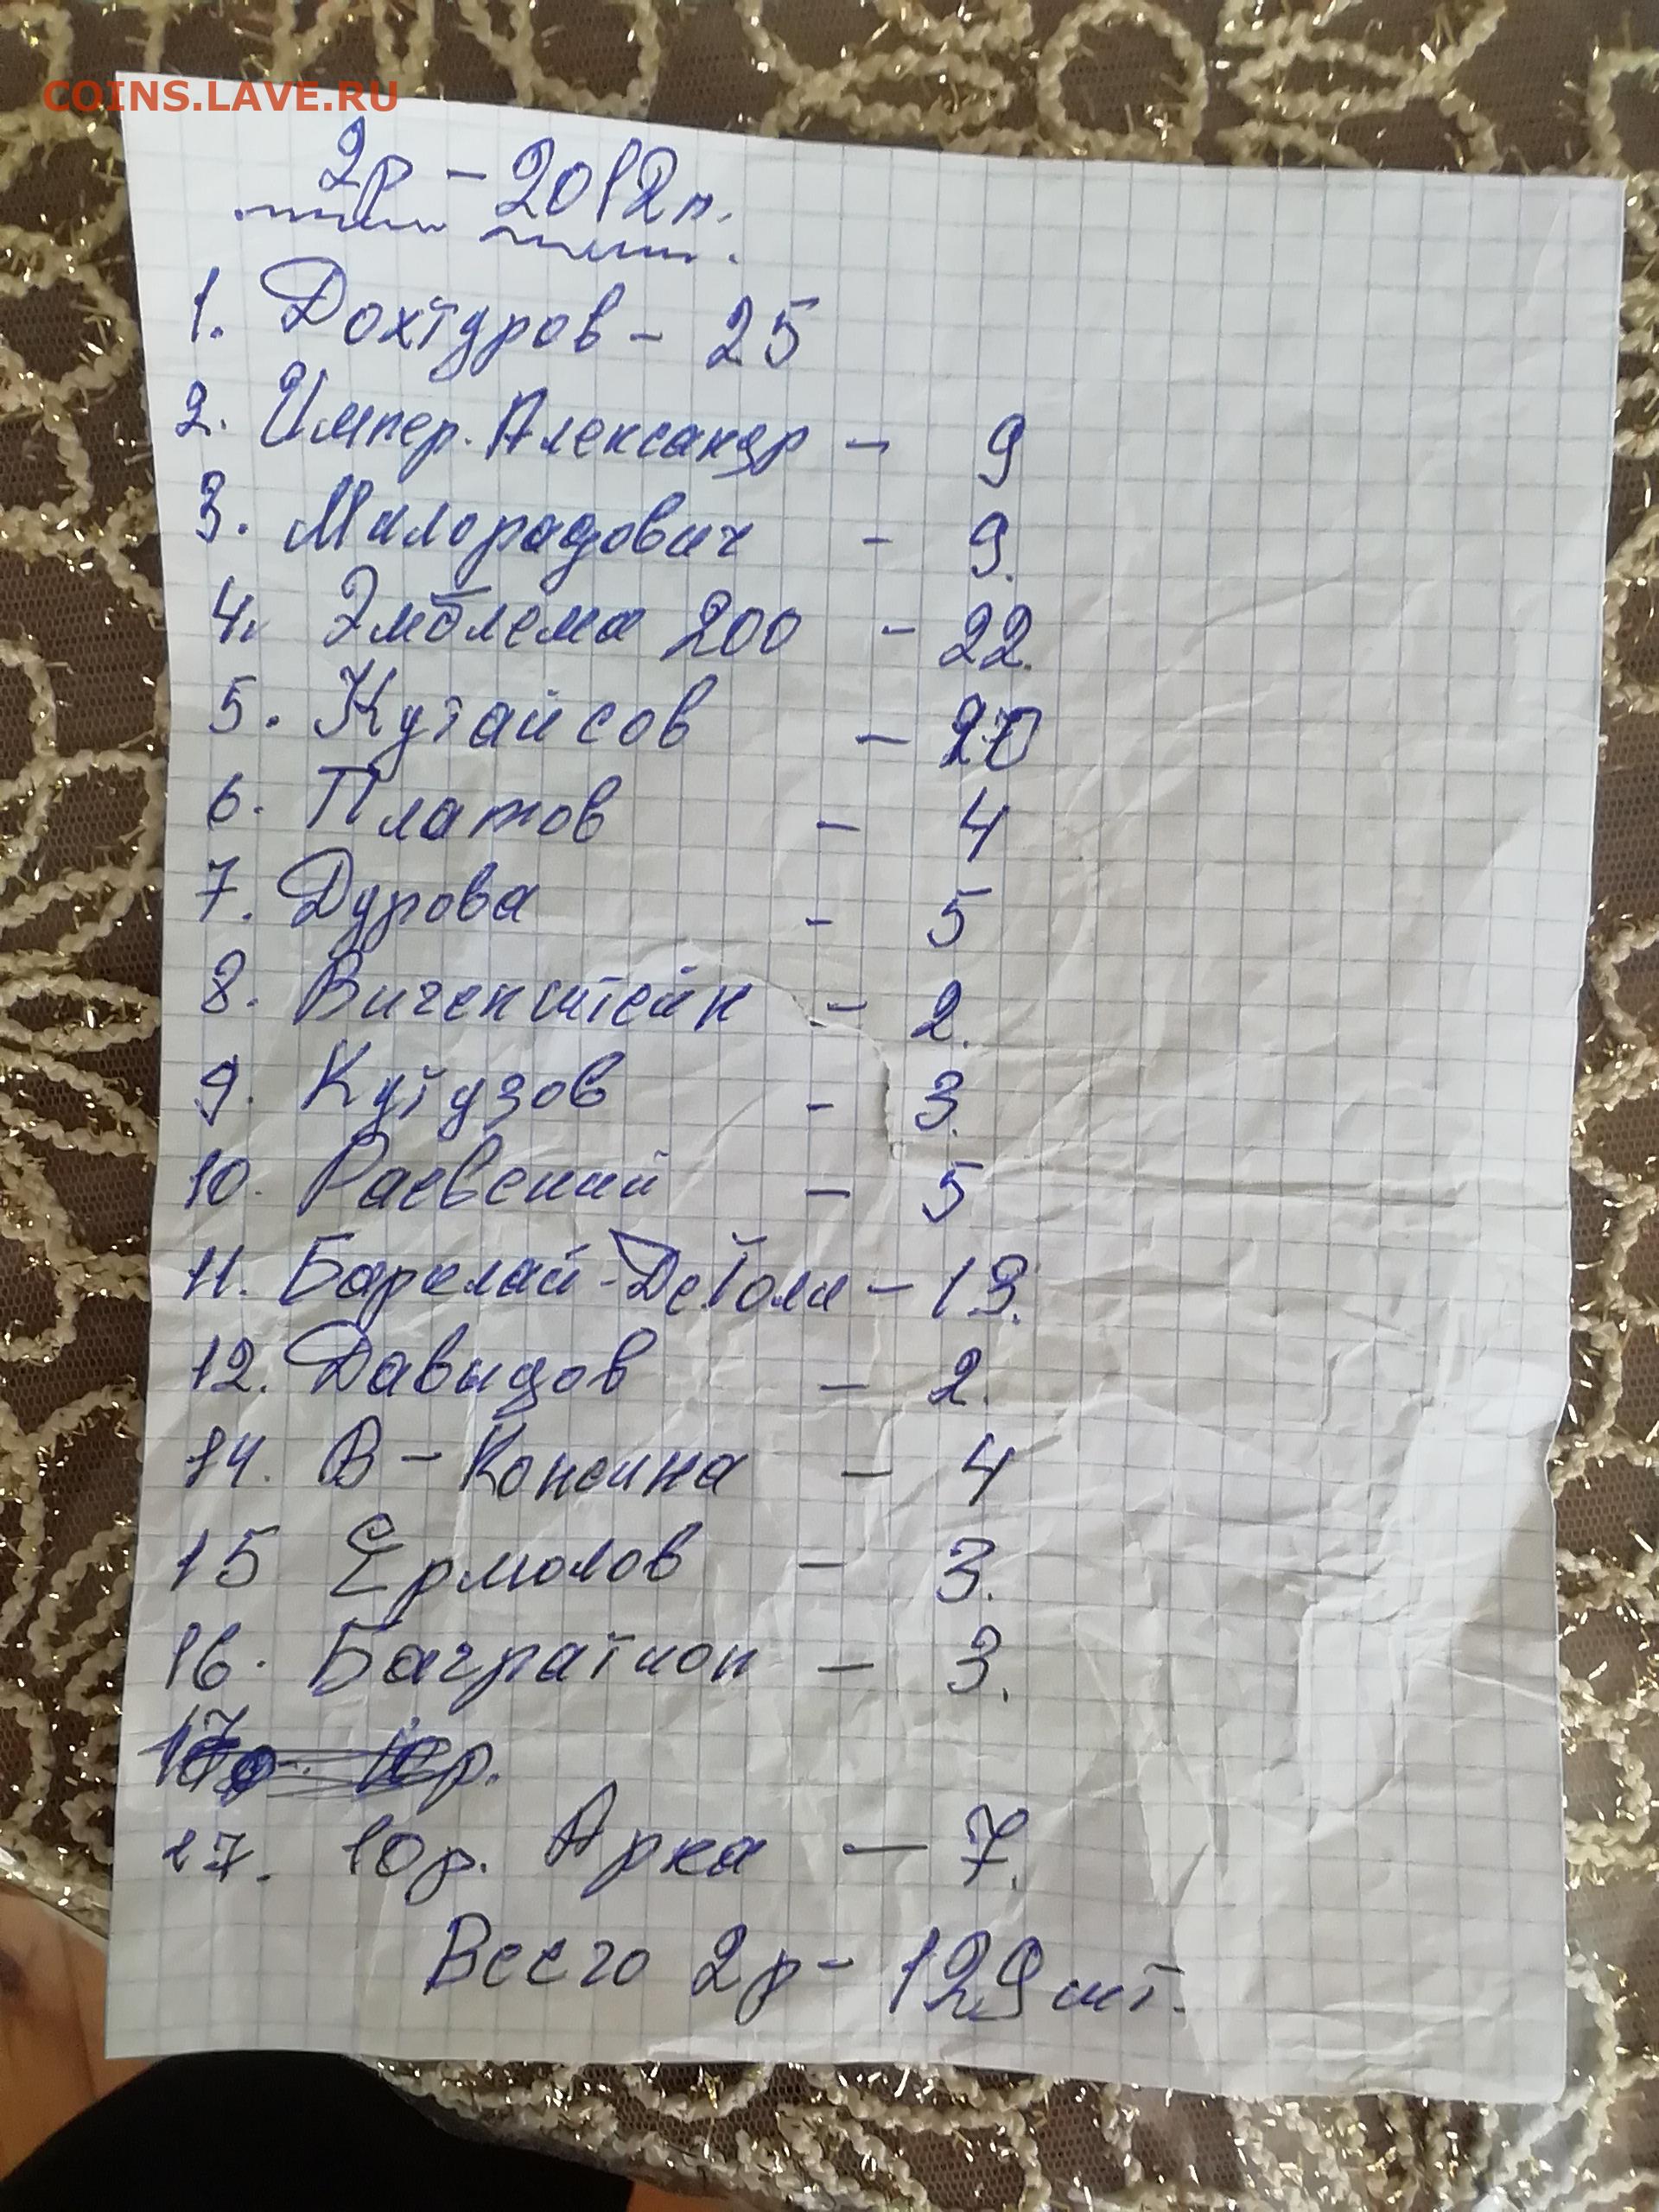 COINS.LAVE.RU
2р - 2012г.
1. Дохтуров - 25
2. Импер. Александр - 9
3. Милорадович - 9.
4. Эмблема 200 - 22.
5. Кутайсов - 20
6. Платов - 4
7. Дурова - 5
8. Вигенштейн - 2.
9. Кутузов - 3.
10. Раевский - 5
11. Барклай-ДеТоли - 13.
12. Давыдов - 2.
14. В - Кожина - 4
15 Ермолов - 3.
16. Багратион - 3.
17. 10р. Арка - 7.
Всего 2р - 129 шт.